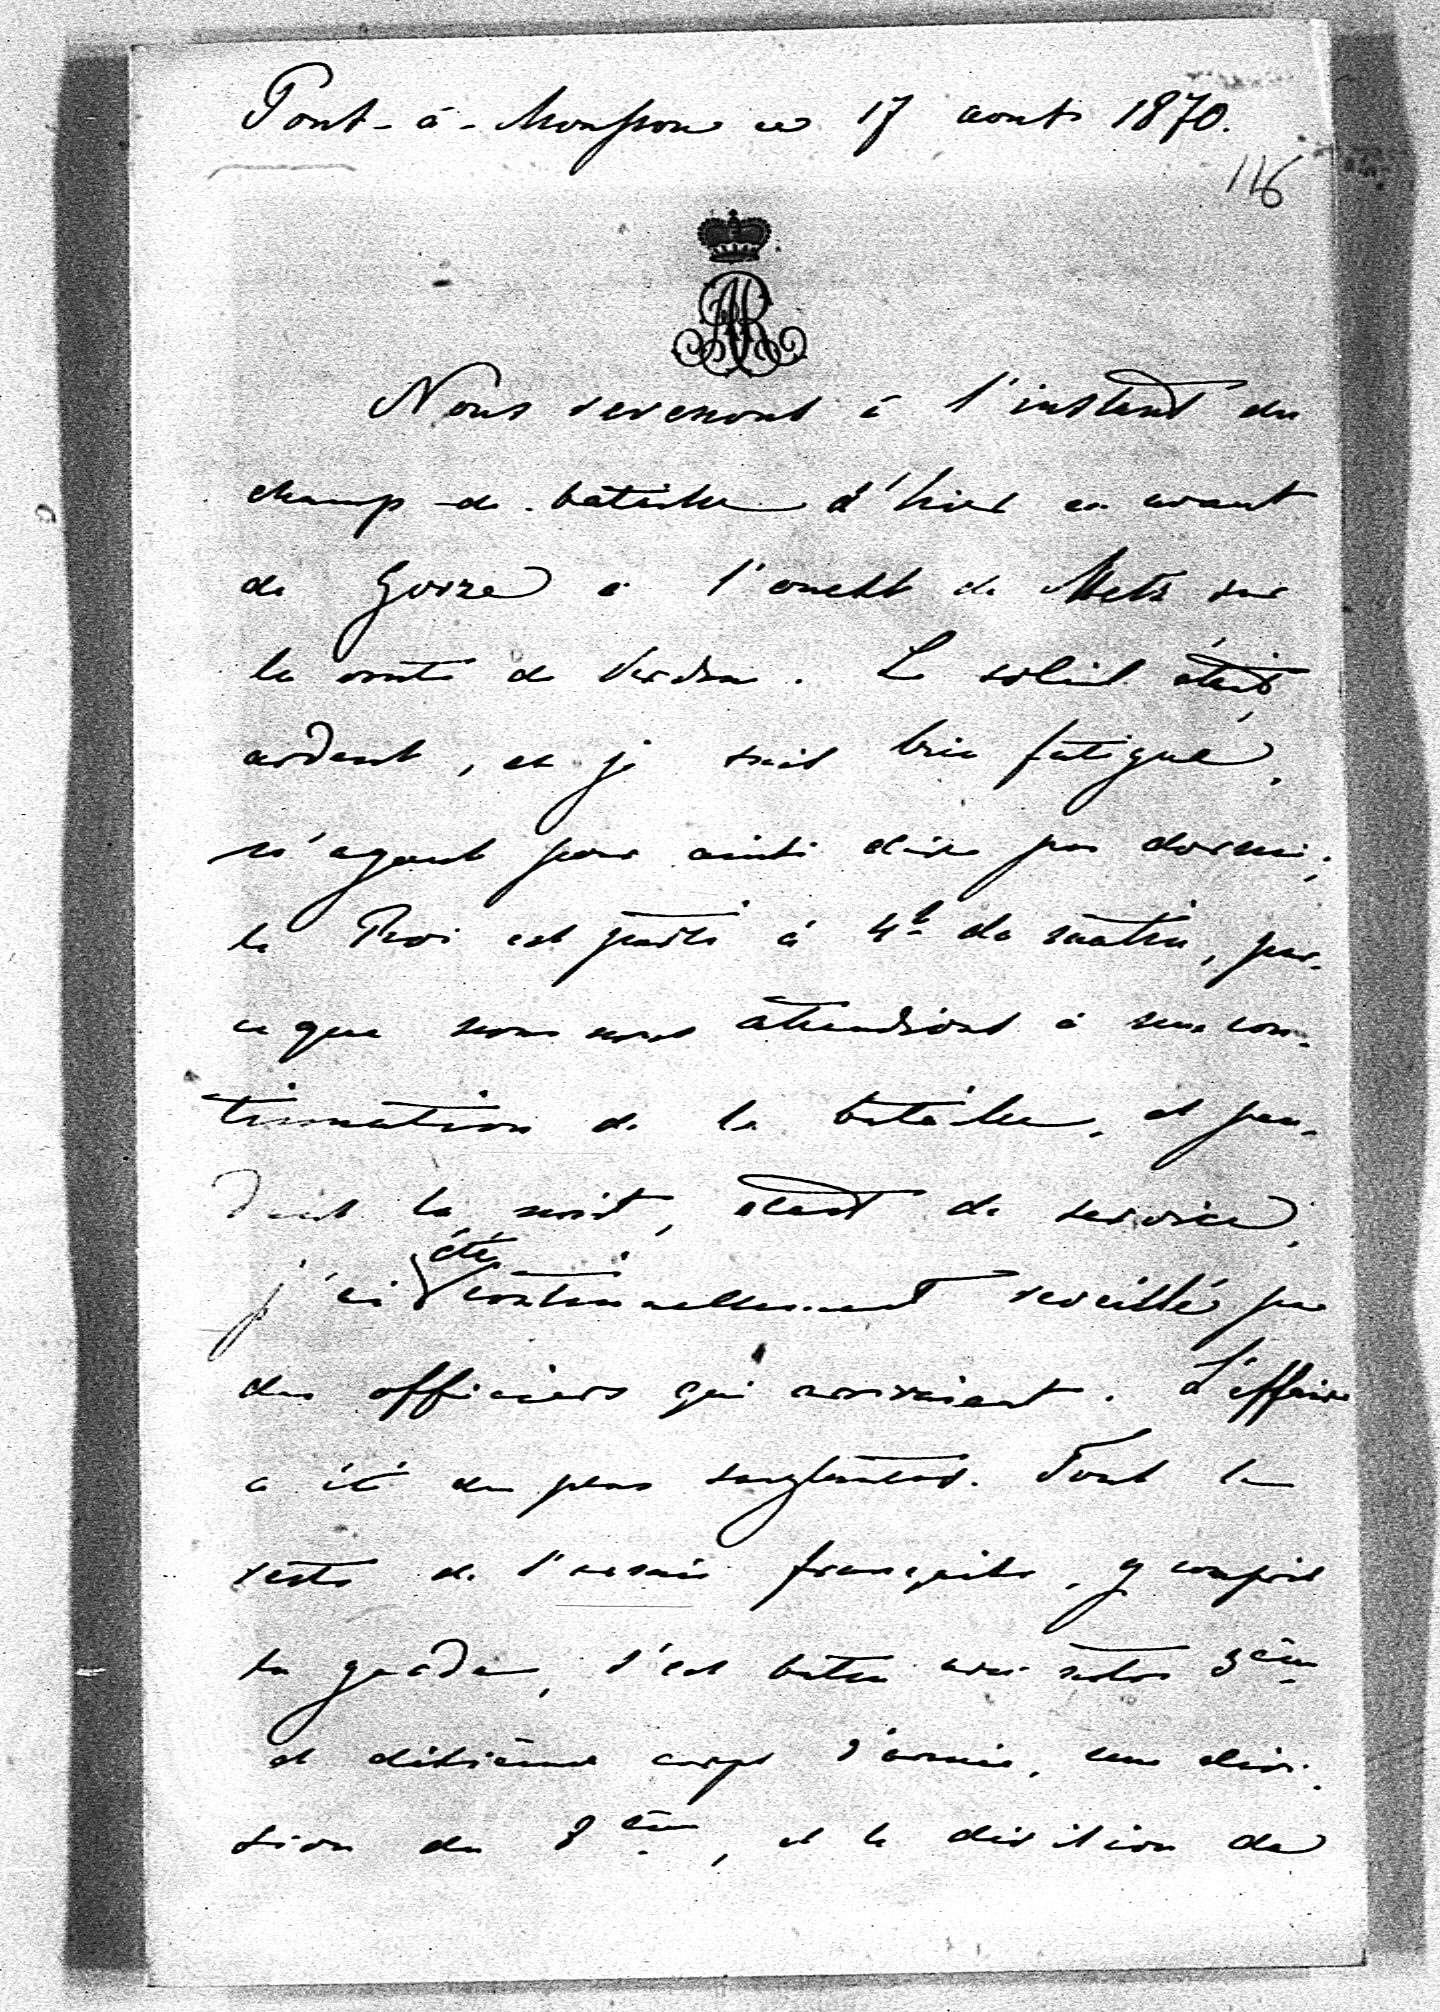 Pont-à-Mousson ce 17 aout 1870.
116
AR
Nous revenons à l'instant du
champ de bataille d'hier en avant
de Gorze à l'ouest de Metz sur
la route de Verdun. Le soleil était
ardent, et je suis bien fatigué,
n'ayant pour ainsi dire pas dormi;
le Roi est parti à 4h du matin, par-
ce que nous nous attendions à une con-
tinuation de la bataille, et pen-
dant la nuit, étant de service,
j'ai été continuellement reveillé par
des officiers qui arrivaient. L'affaire
a été des plus sanglantes. Tout le
reste de l'armée française, y compris
la garde, s'est battu avec notre 3ème
et dixième corps d'armée, une divi-
sion du 8ème, et la division de